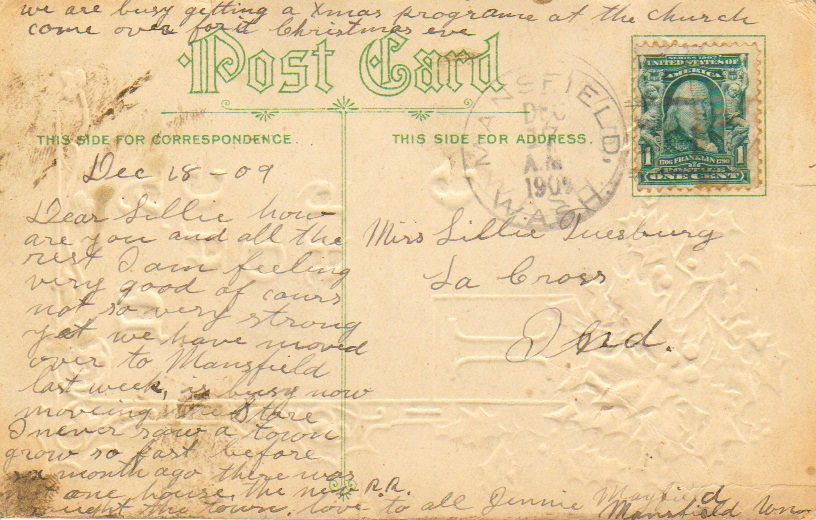 we are busy getting a Xmas programe at the church
come over for it Christmas eve
Post Card
THIS SIDE FOR CORRESPONDENCE.
THIS SIDE FOR ADDRESS.
MANSFIELD, WASH.
DEC
A.M
1909
SERIES 1902
UNITED STATES OF
AMERICA
1 1
1706 FRANKLIN 1790
POSTAGE
ONE CENT
Dec 18 - 09
Dear Lillie how
are you and all the
rest I am feeling
very good of cours
not so very strong
yet we have moved
over to Mansfield
last week, is busy now
moveing the Store
I never saw a town
grow so fast before
six month ago there was
not one house the new R.R.
the town. love to all Jennie
Mansfield Wn
Miss Lillie Tuesburg
La Cross
Ind.